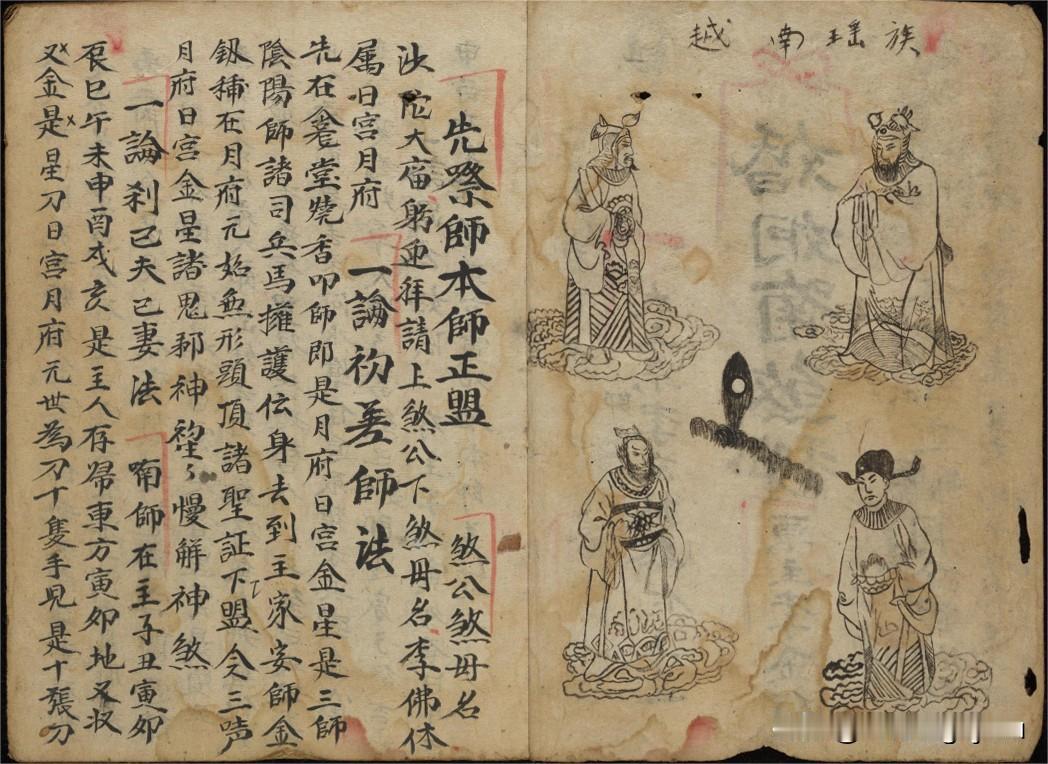 越南瑶族
先祭師本師正盟
煞公煞毋名
沙陀大庙躬迎拜請上煞公下煞毋名李佛休
属日宫月府
一論初差師法
先在堂燒香叩師即是月府日宫金星是三師
陰陽師諸司兵馬擁護伝身去到主家安師金
釼種在月府元始無形頭頂諸聖証下盟令三声
月府日宫金星諸鬼邪神慢解神煞
一論刹己夫己妻法
喃師在主子丑寅卯
辰巳午未申酉戍亥是主人存帰東方寅卯地又收
又金是星刀日宫月府元世為刀十隻手見是十張刀